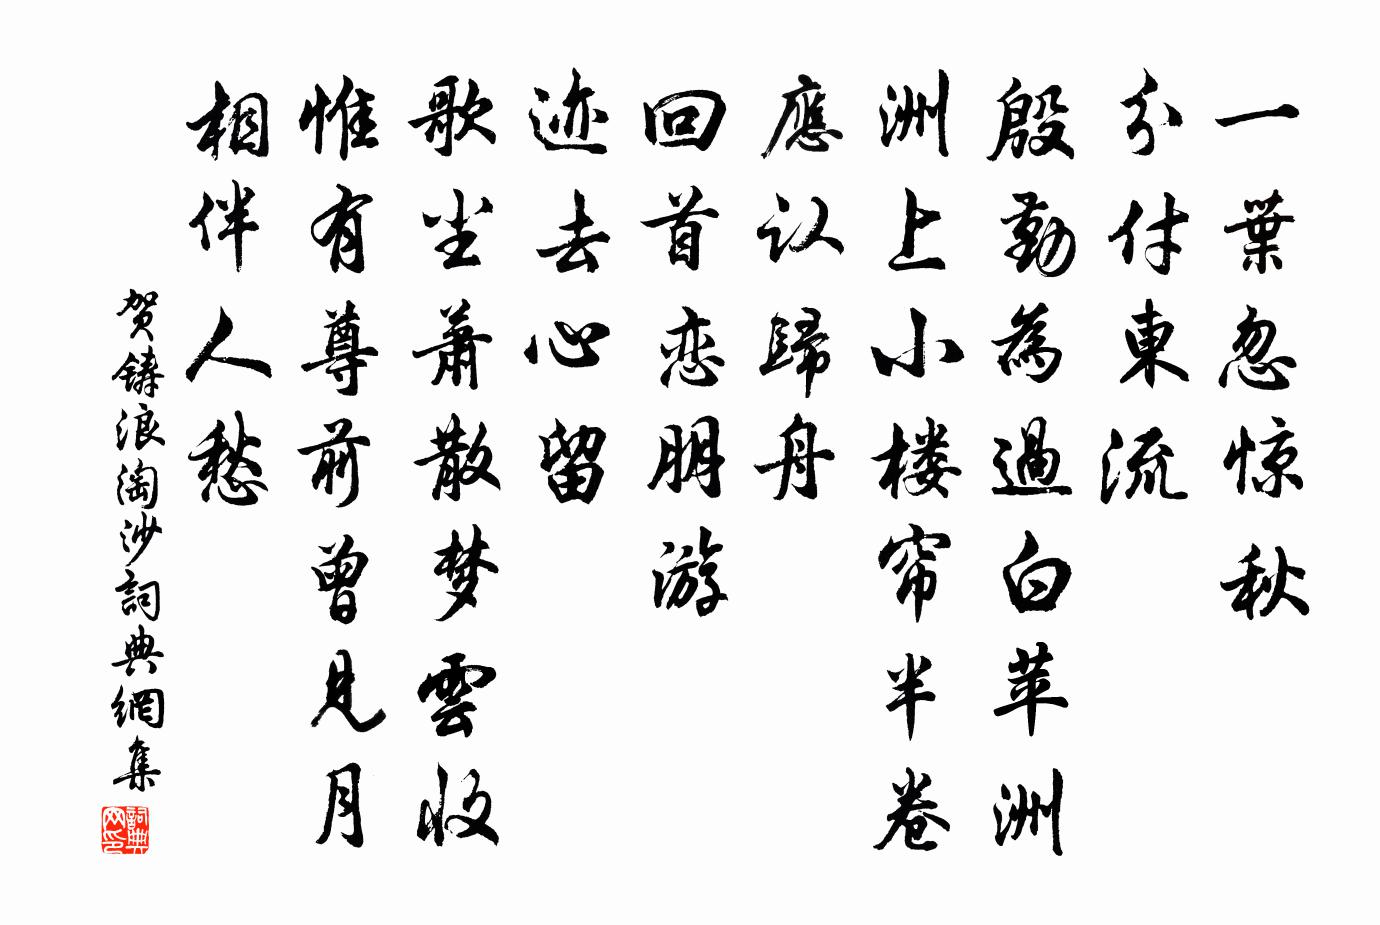 一葉忽惊秋
分付東流
殷勤為過白苹洲
洲上小楼帘半卷
應认歸舟
回首恋朋游
迹去心留
歌尘萧散梦雲收
惟有尊前曾見月
相伴人愁
贺鋳浪淘沙詞典網集
詞典网印